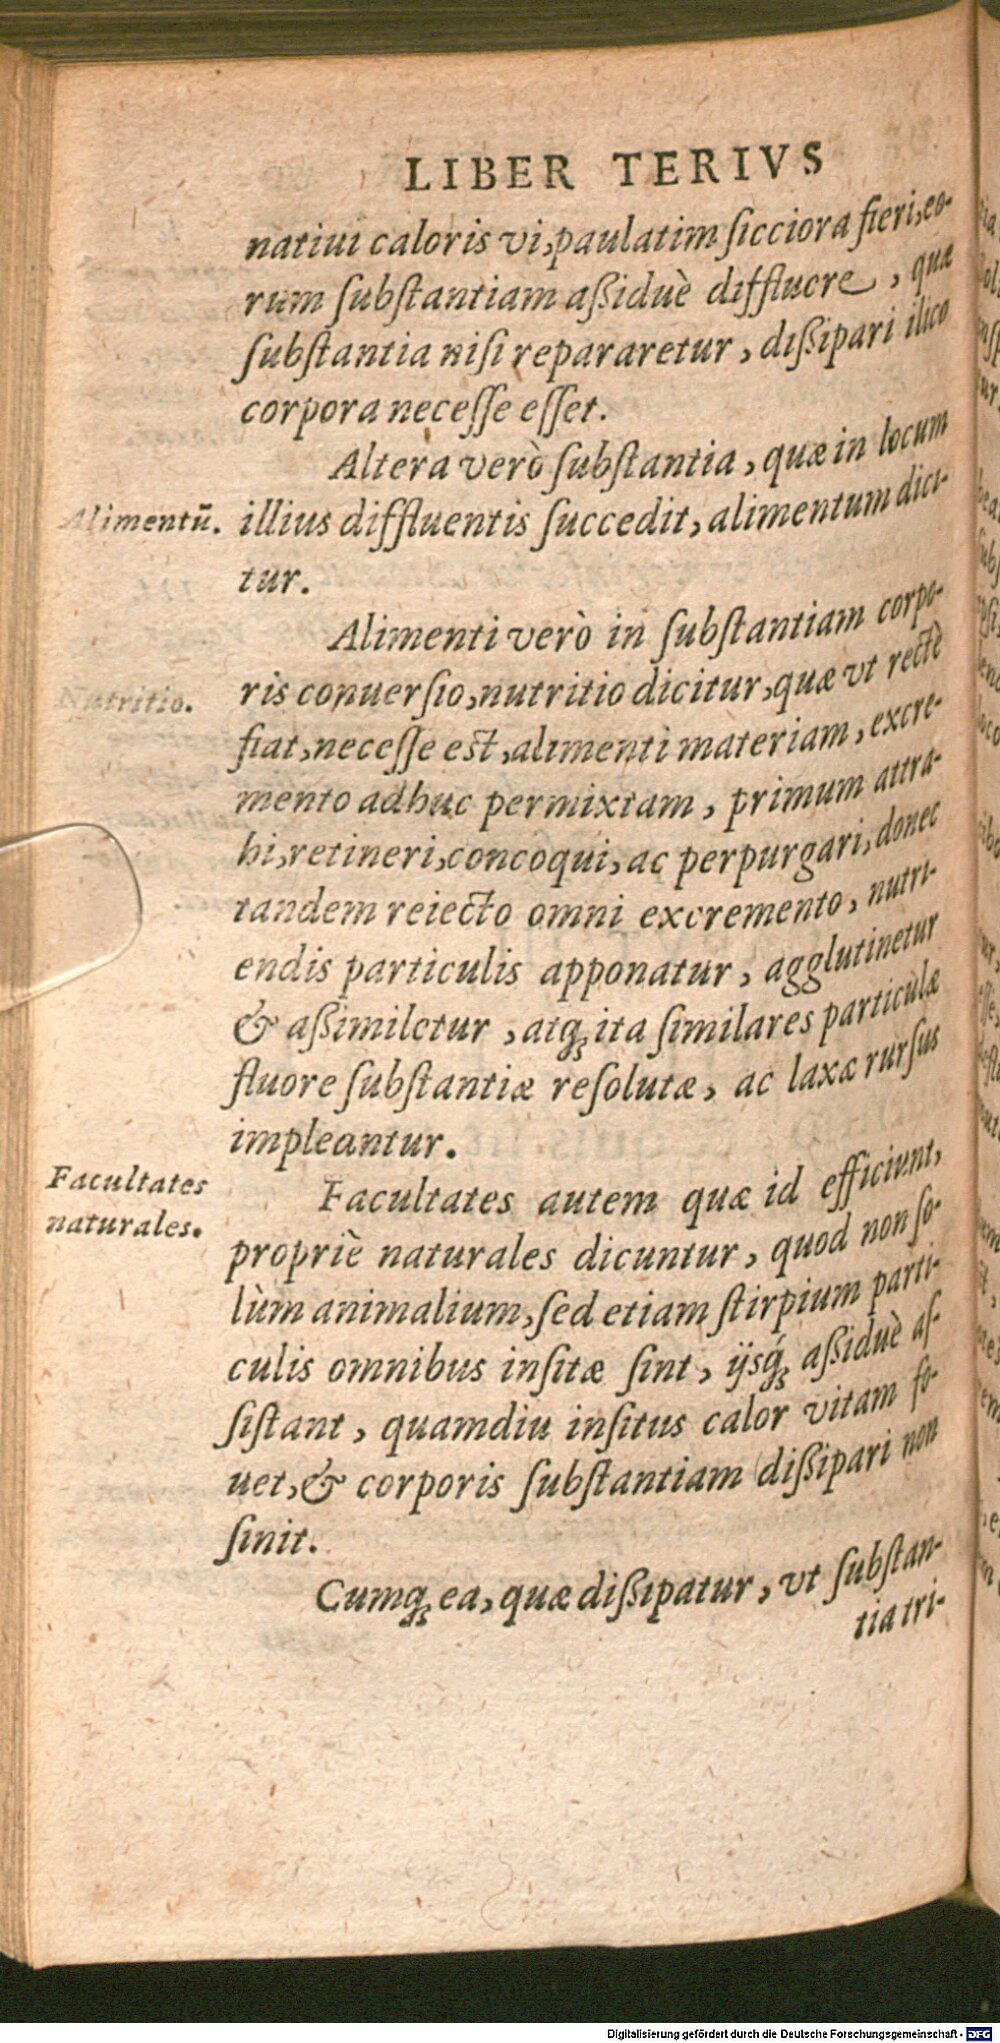 LIBER TERIVS
natiui caloris vi, paulatim ſicciora fieri, eo-
rum ſubſtantiam aßiduè diffluere, quæ
ſubſtantia niſi repararetur, dißipari ilico
corpora neceſſe eſſet.
Altera verò ſubſtantia, quæ in locum
Alimentū.
illius diffluentis ſuccedit, alimentum dici-
tur.
Alimenti verò in ſubſtantiam corpo-
Nutritio.
ris conuerſio, nutritio dicitur, quæ vt rectè
fiat, neceſſe est, alimenti materiam, excre-
mento adhuc permixtam, primum attra-
hi, retineri, concoqui, ac perpurgari, donec
tandem reiecto omni excremento, nutri-
endis particulis apponatur, agglutinetur
& aßimiletur, atq; ita ſimilares particulæ
fluore ſubſtantiæ reſolutæ, ac laxæ rurſus
impleantur.
Facultates
naturales.
Facultates autem quæ id efficiunt,
propriè naturales dicuntur, quod non ſo-
lùm animalium, ſed etiam ſtirpium parti-
culis omnibus inſitæ ſint, ijsq́; aßiduè aſ-
ſiſtant, quamdiu inſitus calor vitam fo-
uet, & corporis ſubſtantiam dißipari non
ſinit.
Cumq; ea, quæ dißipatur, vt ſubſtan-
tia tri-
Digitalisierung gefördert durch die Deutsche Forschungsgemeinschaft - DFG